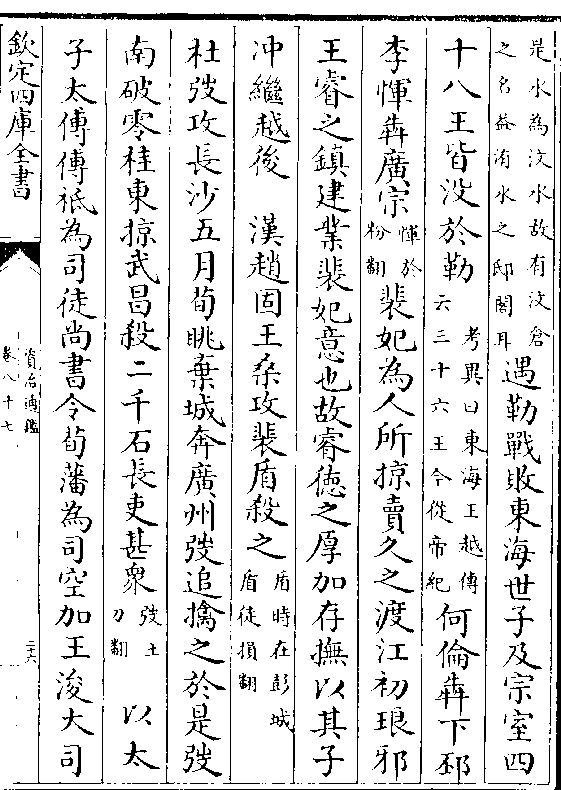 是水為汶水故有汶倉
之名益洧水之邸閣耳
遇勒戰敗東海世子及宗室四
十八王皆没於勒
考異曰東海王越傳
云三十六王今從帝紀
何倫犇下邳
李惲犇廣宗
惲於
粉翻
裴妃為人所掠賣久之渡江初琅邪
王睿之鎮建業裴妃意也故睿德之厚加存撫以其子
冲繼越後　漢趙固王桑攻裴盾殺之
盾時在彭城
盾徒損翻
杜弢攻長沙五月荀眺棄城奔廣州弢追擒之於是弢
南破零桂東掠武昌殺二千石長吏甚衆
弢土
刀翻
以太
子太傅傅祗為司徒尚書令荀藩為司空加王浚大司
欽定四庫全書
資治通鑑
卷八十七
二六